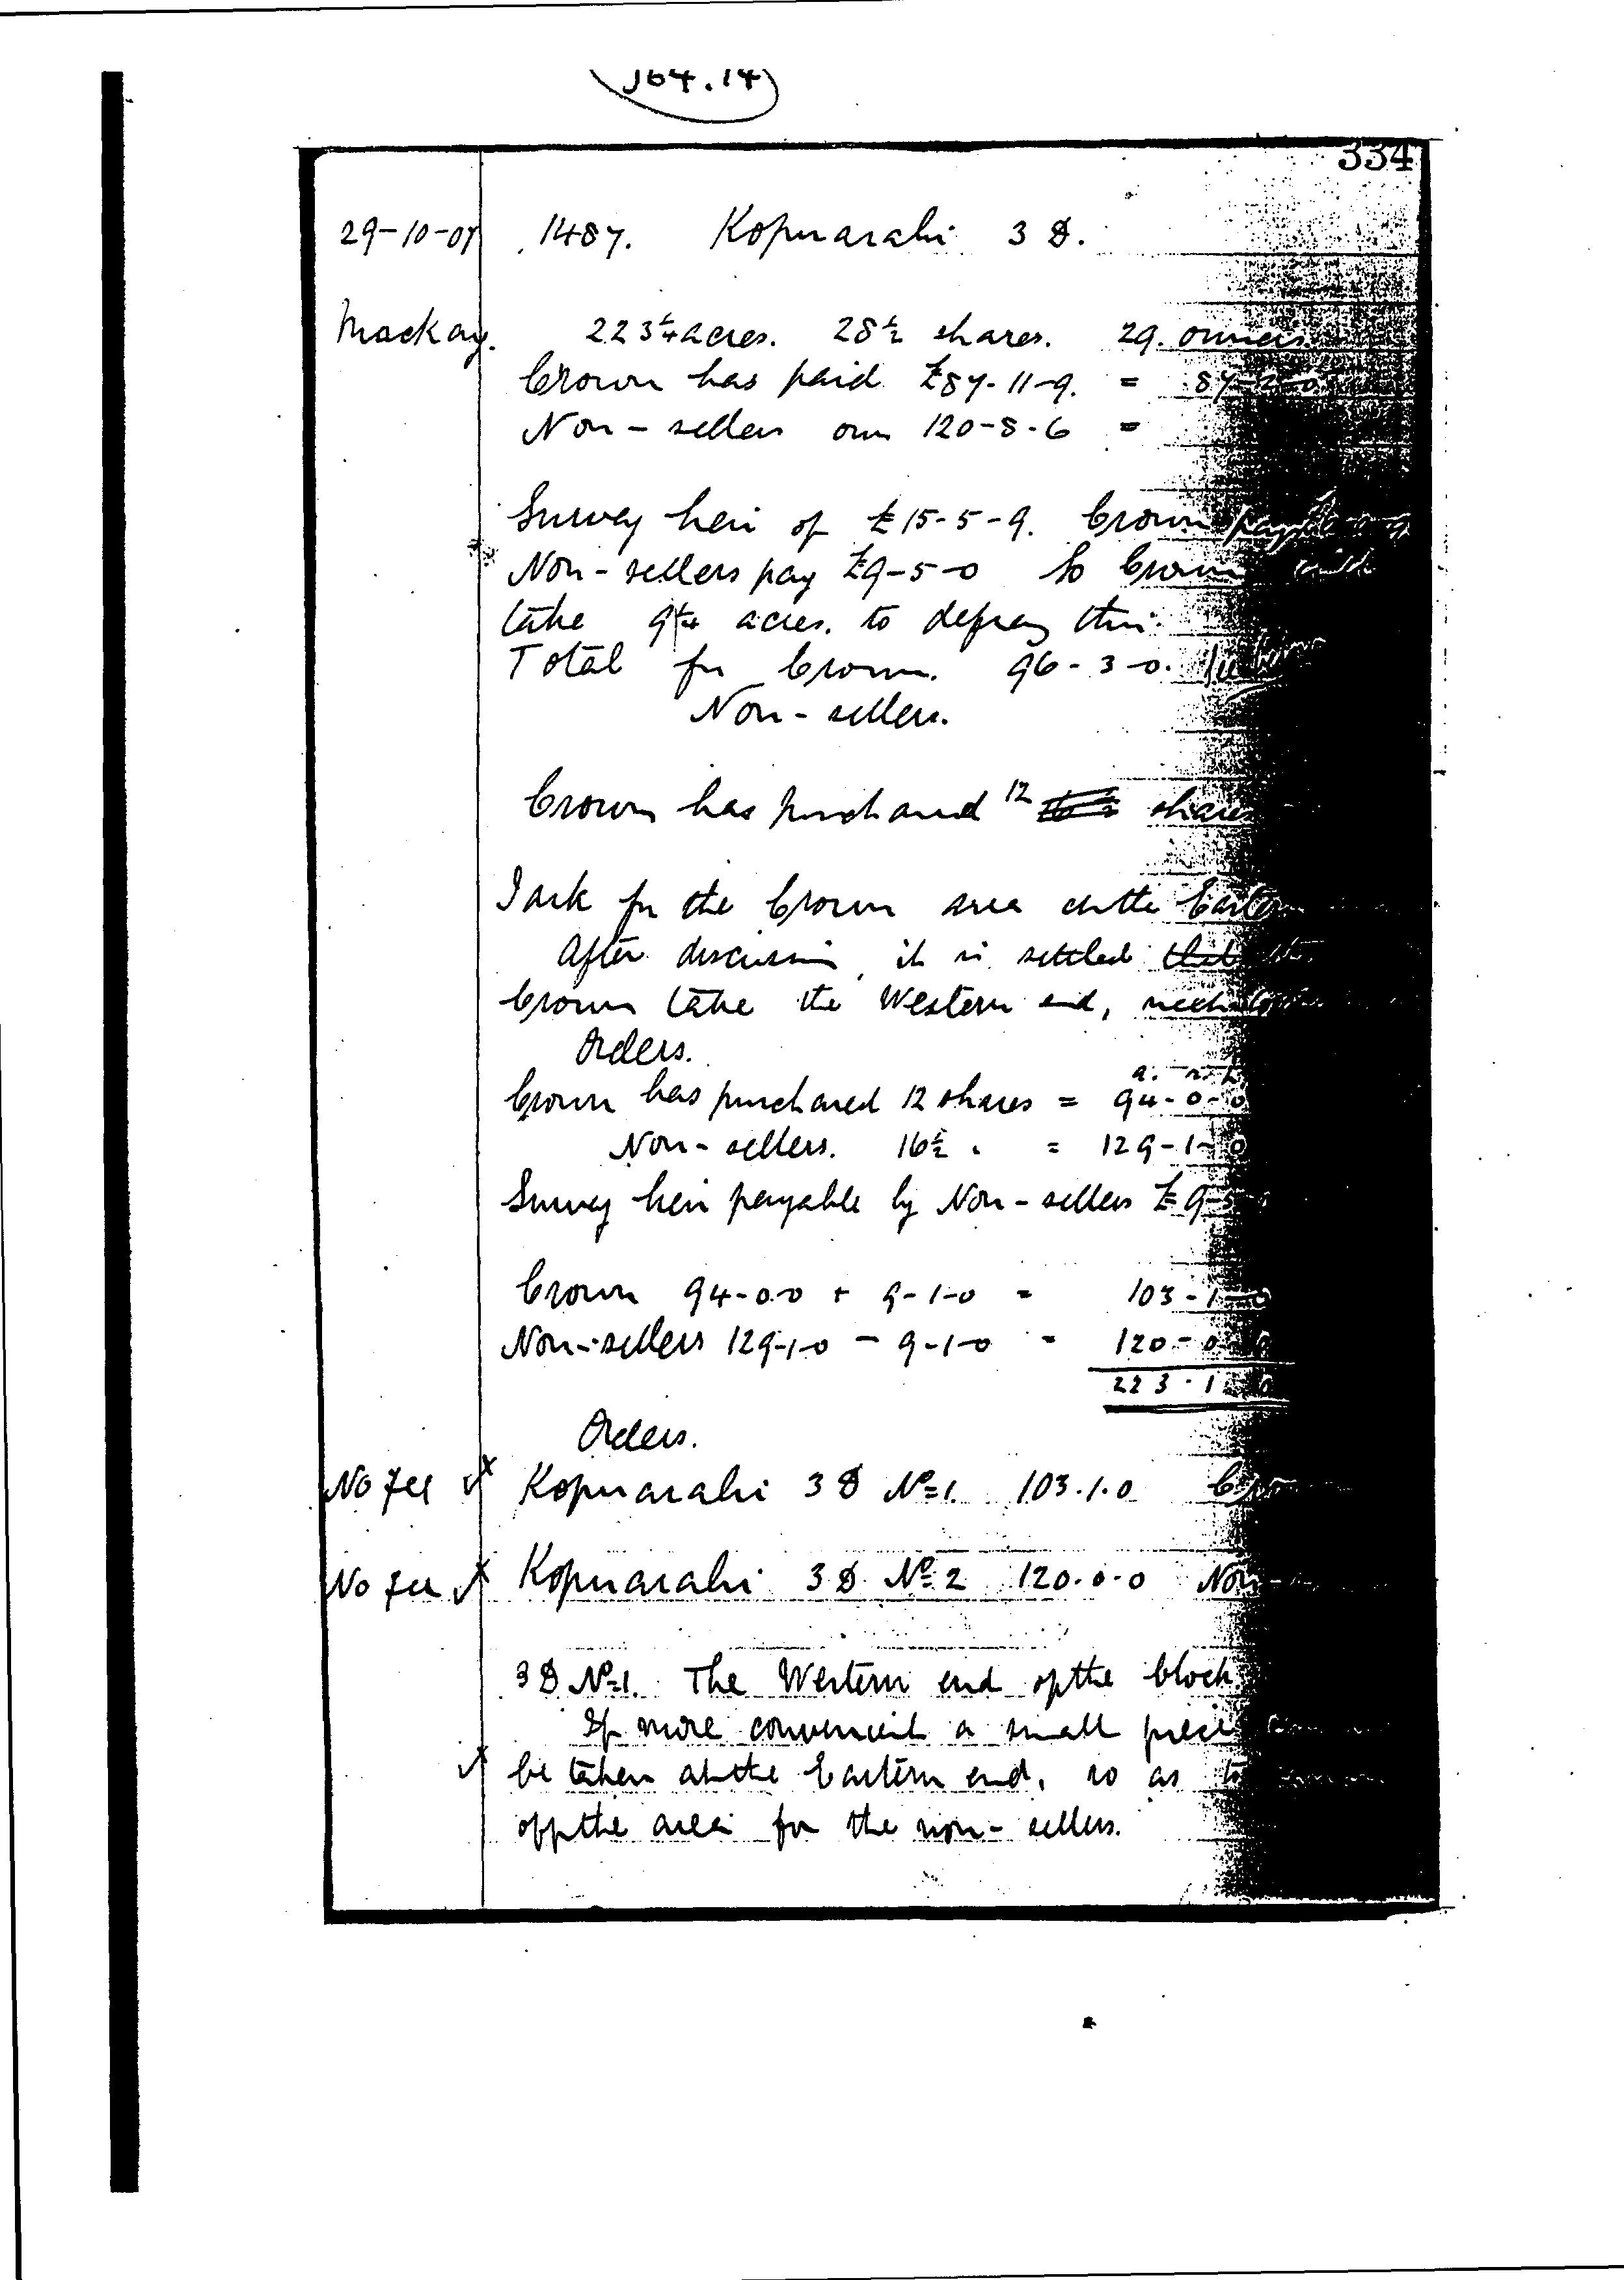 J64.14
334
29-10-07 1487. Kopuarahi 3 D.
Mackay. 223¼ acres. 28½ shares. 29. owners
Crown has paid £87-11-9. = 87-2-0
Non-sellers own 120-8-6 =
Survey lien of £15-5-9. Crown pays
Non-sellers pay £9-5-0 So Crown
take 9¼ acres. to defray this.
Total for Crown. 96-3-0.
Non-sellers.
Crown has purchased 12 shares
I ask for the Crown area at the Eastern
After discussion, it is settled that
Crown take the Western end,
Orders.
a. r. p.
Crown has purchased 12 shares = 94-0-0
Non-sellers. 16½ " = 129-1-0
Survey lien payable by Non-sellers £9-5
Crown 94-0-0 + 9-1-0 = 103-1-0
Non-sellers 129-1-0 - 9-1-0 = 120-0-0
223-1-0
Orders.
No fee Kopuarahi 3 D No 1. 103.1.0
No fee Kopuarahi 3 D No 2 120.0.0 Non-
3 D No 1. The Western end of the block
If more convenient a small piece
be taken at the Eastern end, so as to
off the area for the non-sellers.